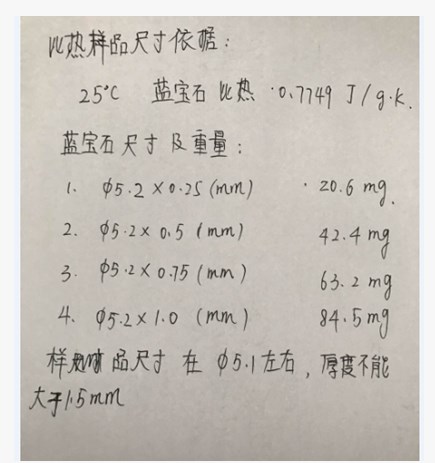 比热样品尺寸依据：
25°C 蓝宝石 比热 0.7749 J/g·k.
蓝宝石尺寸及重量：
1. φ5.2×0.25(mm) 20.6 mg.
2. φ5.2×0.5(mm) 42.4 mg
3. φ5.2×0.75(mm) 63.2 mg
4. φ5.2×1.0(mm) 84.5 mg
样品尺寸在φ5.1左右，厚度不能
大于1.5mm